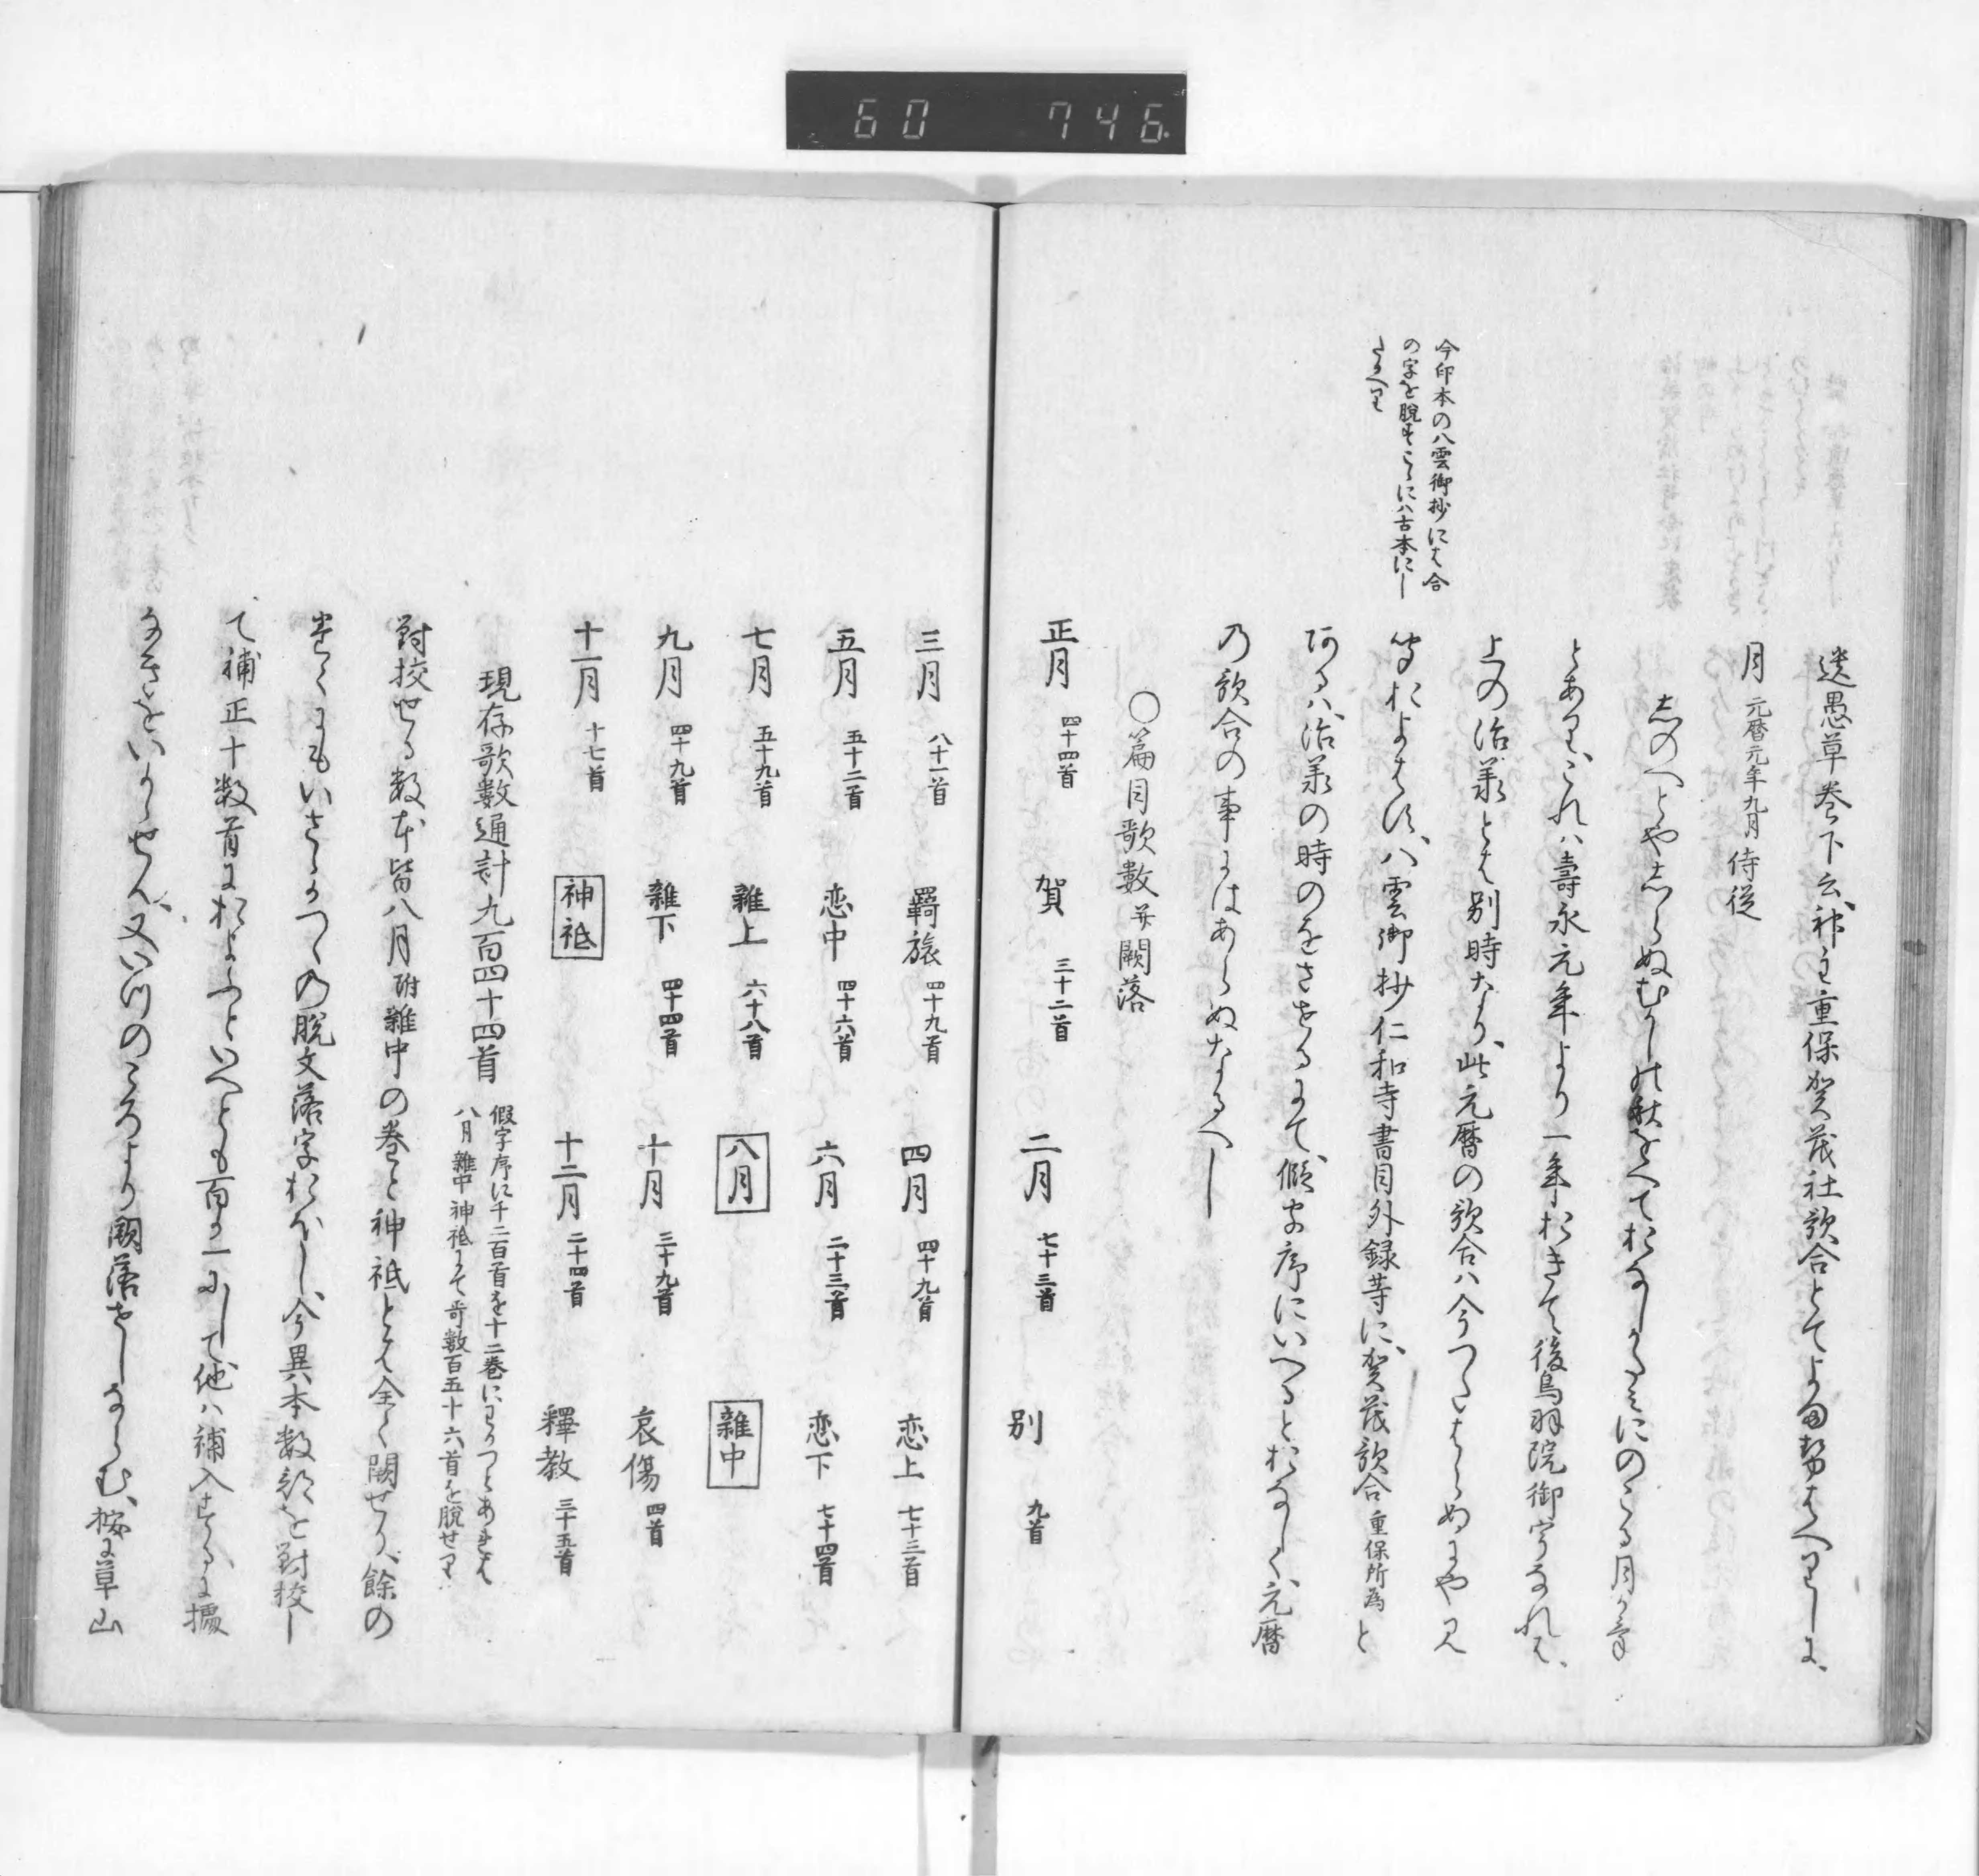 60 746
今印本の八雲御抄には合
の字を脱せりこゝには古本にし
たかへり
遺愚草巻下云神主重保賀茂社歌合とてよませ侍しに
月 元暦元年九月侍従
しのへとやしらぬむかしの秋をへておなしかたみにのこる月かけ
とあり、これハ壽永元年より一年おきて後鳥羽院御宇なれは、
上の治承とは別時なり、此元暦の歌合ハ今つたはらぬにや
等によるに、八雲御抄仁和寺書目外録等に、賀茂歌合 重保所為 と
あるハ、治承の時のをさせるにて、假字序にいへるとおなしく、元暦
の歌合の事にはあらぬなるへし
○篇目歌數并闕落
正月 四十四首 賀 三十二首 二月 七十三首 別 九首
三月 八十一首 羇旅 四十九首 四月 四十九首 恋上 七十三首
五月 五十二首 恋中 四十六首 六月 二十三首 恋下 七十四首
七月 五十九首 雜上 六十八首 八月 雜中
九月 四十九首 雜下 四十四首 十月 三十九首 哀傷 四首
十一月 十七首 神祇 十二月 二十四首 釋教 三十五首
現存歌數通計九百四十四首 假字序に千二百首を十二巻にわかつとあれは
八月雜中神祇にて哥數百五十六首を脱せり
對挍せる数本皆八月附雜中の巻と神祇とは全く闕せり、餘の
巻〻にもいさゝかつゝの脱文落字おほし、今異本数部を對挍し
て補正十数首におよふといへとも百か一にして他ハ補入するに據
なきをいかゝせん、又いつのころより闕落せしならむ、按に草山